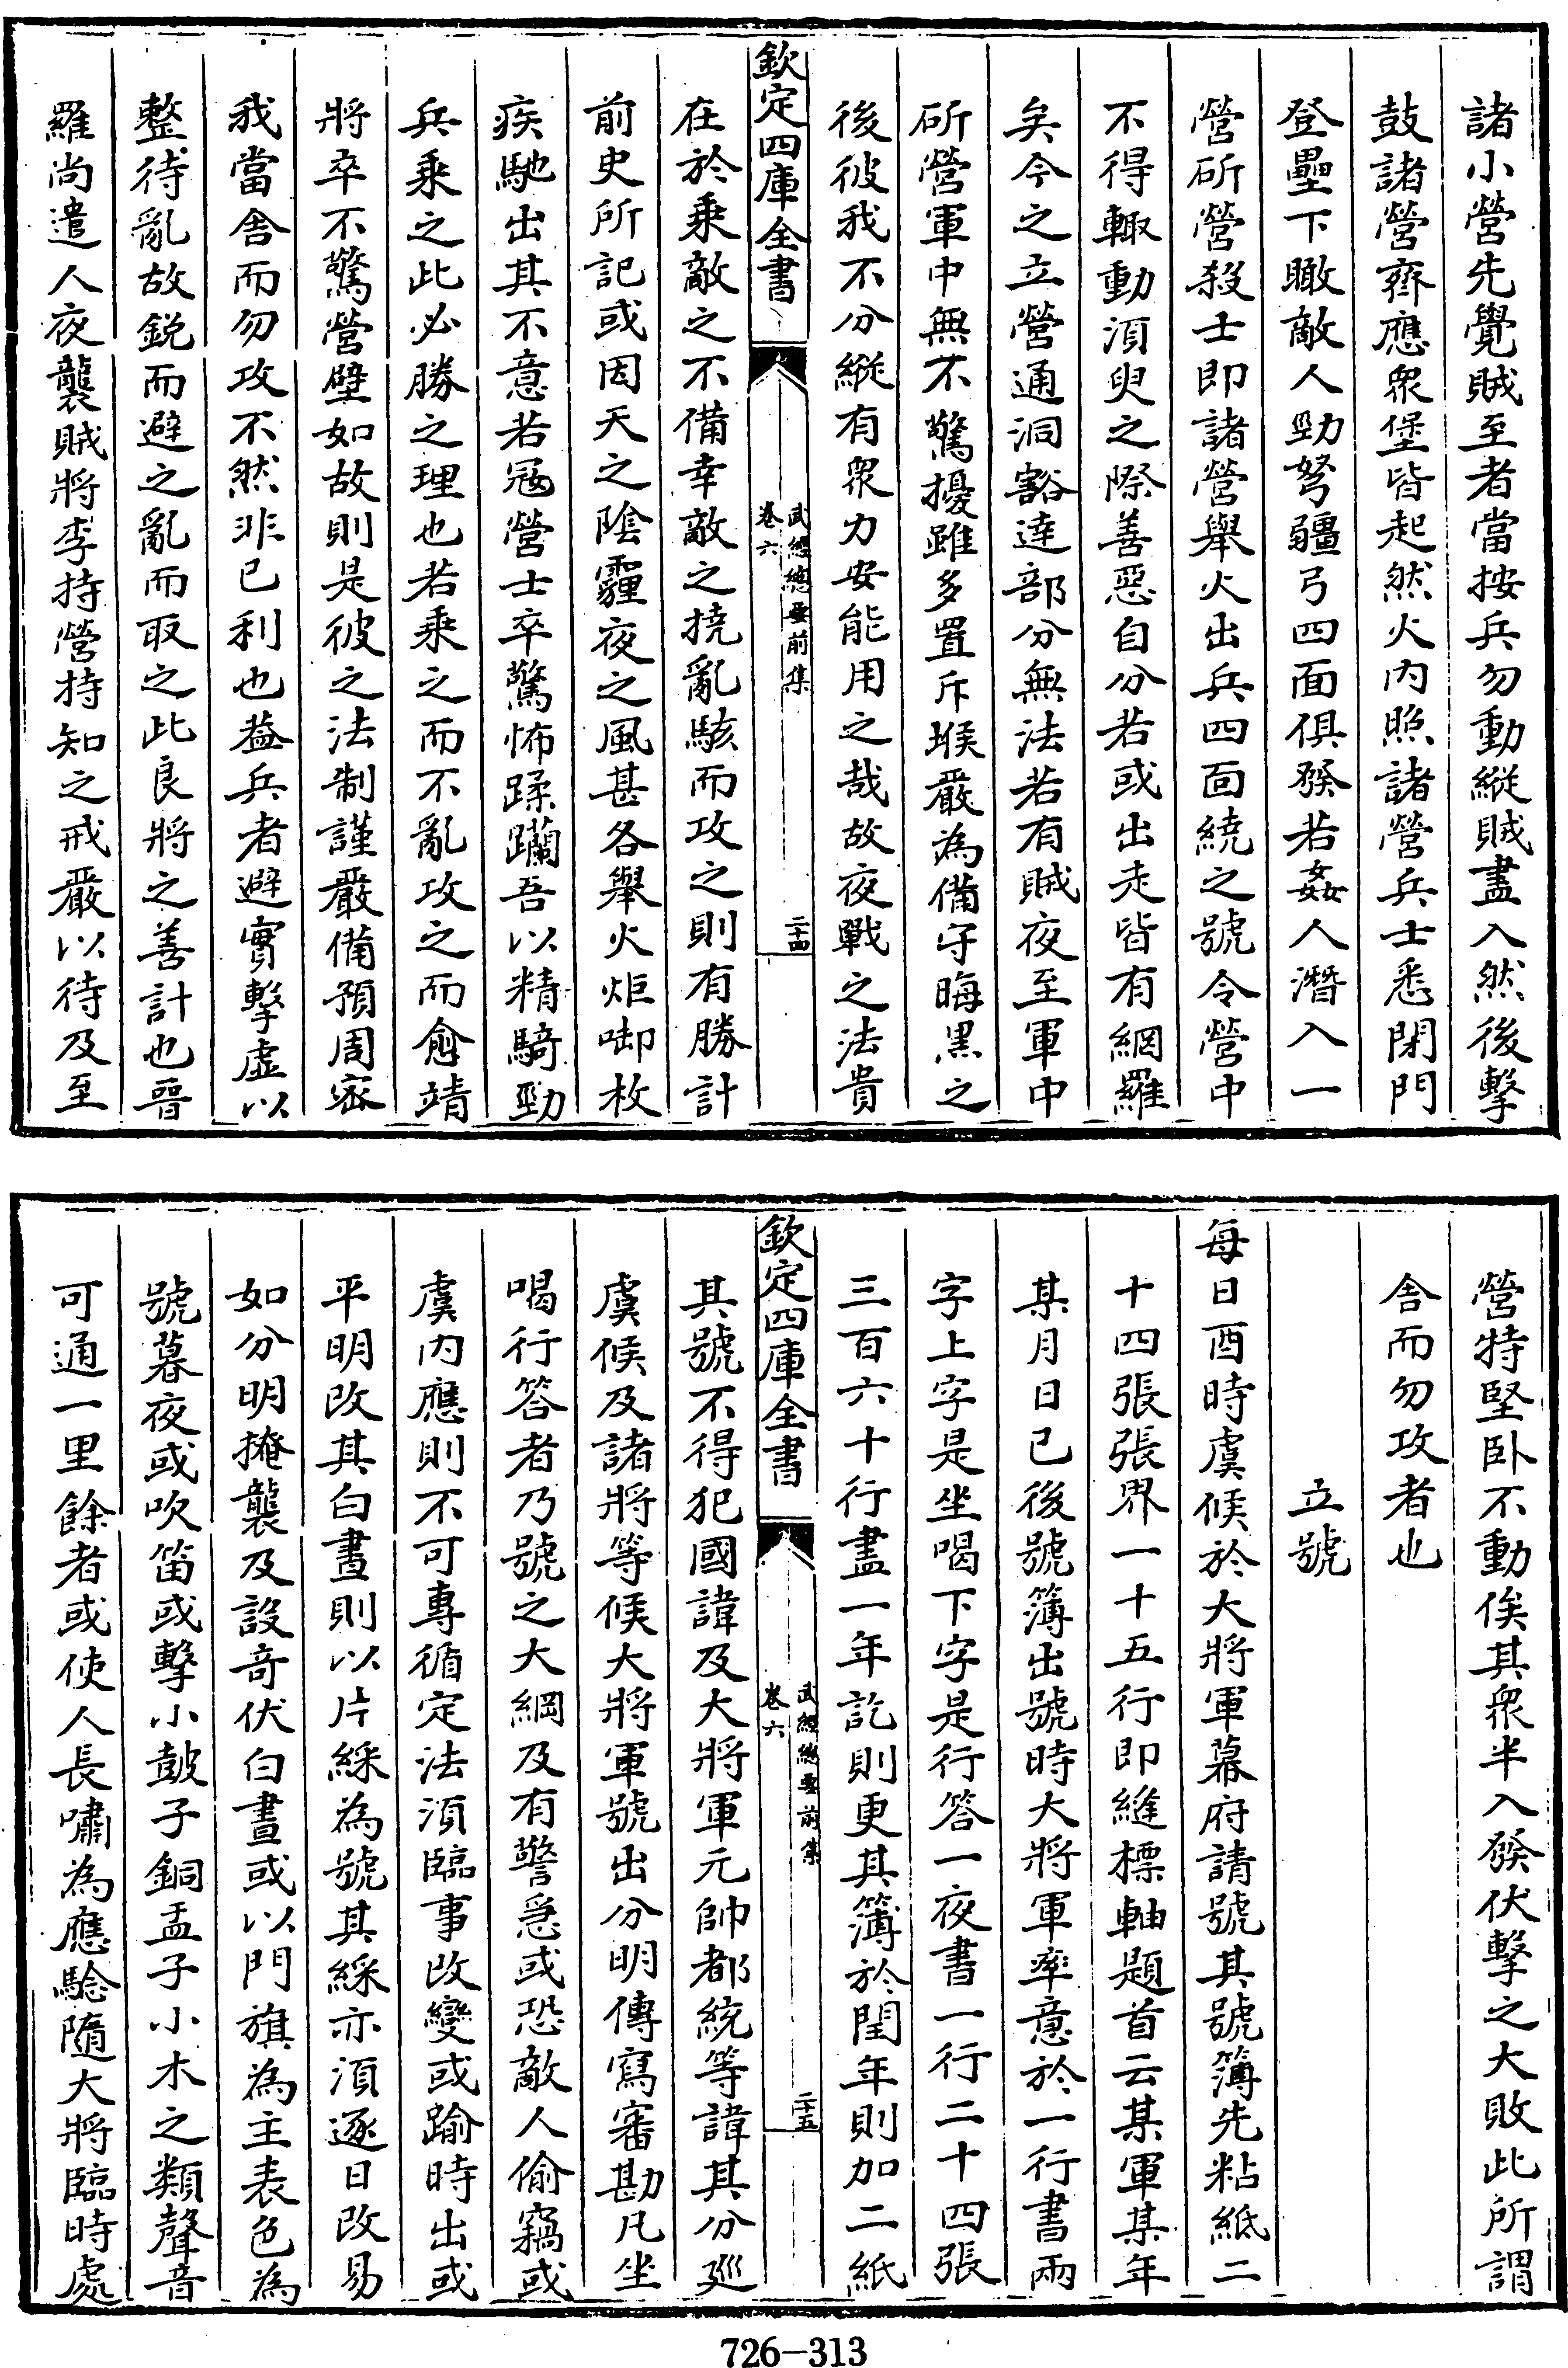 諸小營先覺賊至者當按兵勿動縱賊盡入然後擊
鼓諸營齊應衆堡皆起然火内照諸營兵士悉閉門
登壘下瞰敵人勁弩疆弓四面俱發若姦人潛入一
營斫營殺士即諸營舉火出兵四面繞之號令營中
不得輙動須臾之際善惡自分若或出走皆有網羅
矣今之立營通洞豁達部分無法若有賊夜至軍中
斫營軍中無不驚擾雖多置斥堠嚴為備守晦黒之
後彼我不分縱有衆力安能用之哉故夜戰之法貴
欽定四庫全書
武經總要前集
卷六
二十四
在於乗敵之不備幸敵之撓亂駭而攻之則有勝計
前史所記或因天之陰霾夜之風甚各舉火炬啣枚
疾馳出其不意若冦營士卒驚怖蹂躪吾以精騎勁
兵乘之此必勝之理也若乘之而不亂攻之而愈靖
將卒不驚營壁如故則是彼之法制謹嚴備預周宻
我當舍而勿攻不然非已利也葢兵者避實擊虚以
整待亂故鋭而避之亂而取之此良將之善計也晉
羅尚遣人夜襲賊將李持營持知之戒嚴以待及至
營特堅卧不動俟其衆半入發伏擊之大敗此所謂
舍而勿攻者也
立號
每日酉時虞候於大將軍幕府請號其號簿先粘紙二
十四張張界一十五行即縫標軸題首云某軍某年
某月日已後號簿出號時大將軍率意於一行書兩
字上字是坐喝下字是行答一夜書一行二十四張
三百六十行盡一年訖則更其簿於閏年則加二紙
欽定四庫全書
武經總要前集
卷六
二十五
其號不得犯國諱及大將軍元帥都統等諱其分廵
虞候及諸將等候大將軍號出分明傳寫審勘凡坐
喝行答者乃號之大綱及有警急或恐敵人偷竊或
虞内應則不可專循定法須臨事改變或踰時出或
平明改其白晝則以片綵為號其綵亦須逐日改易
如分明掩襲及設奇伏白晝或以門旗為主表色為
號暮夜或吹笛或擊小鼓子銅盂子小木之類聲音
可通一里餘者或使人長嘯為應騐隨大將臨時處
726-313